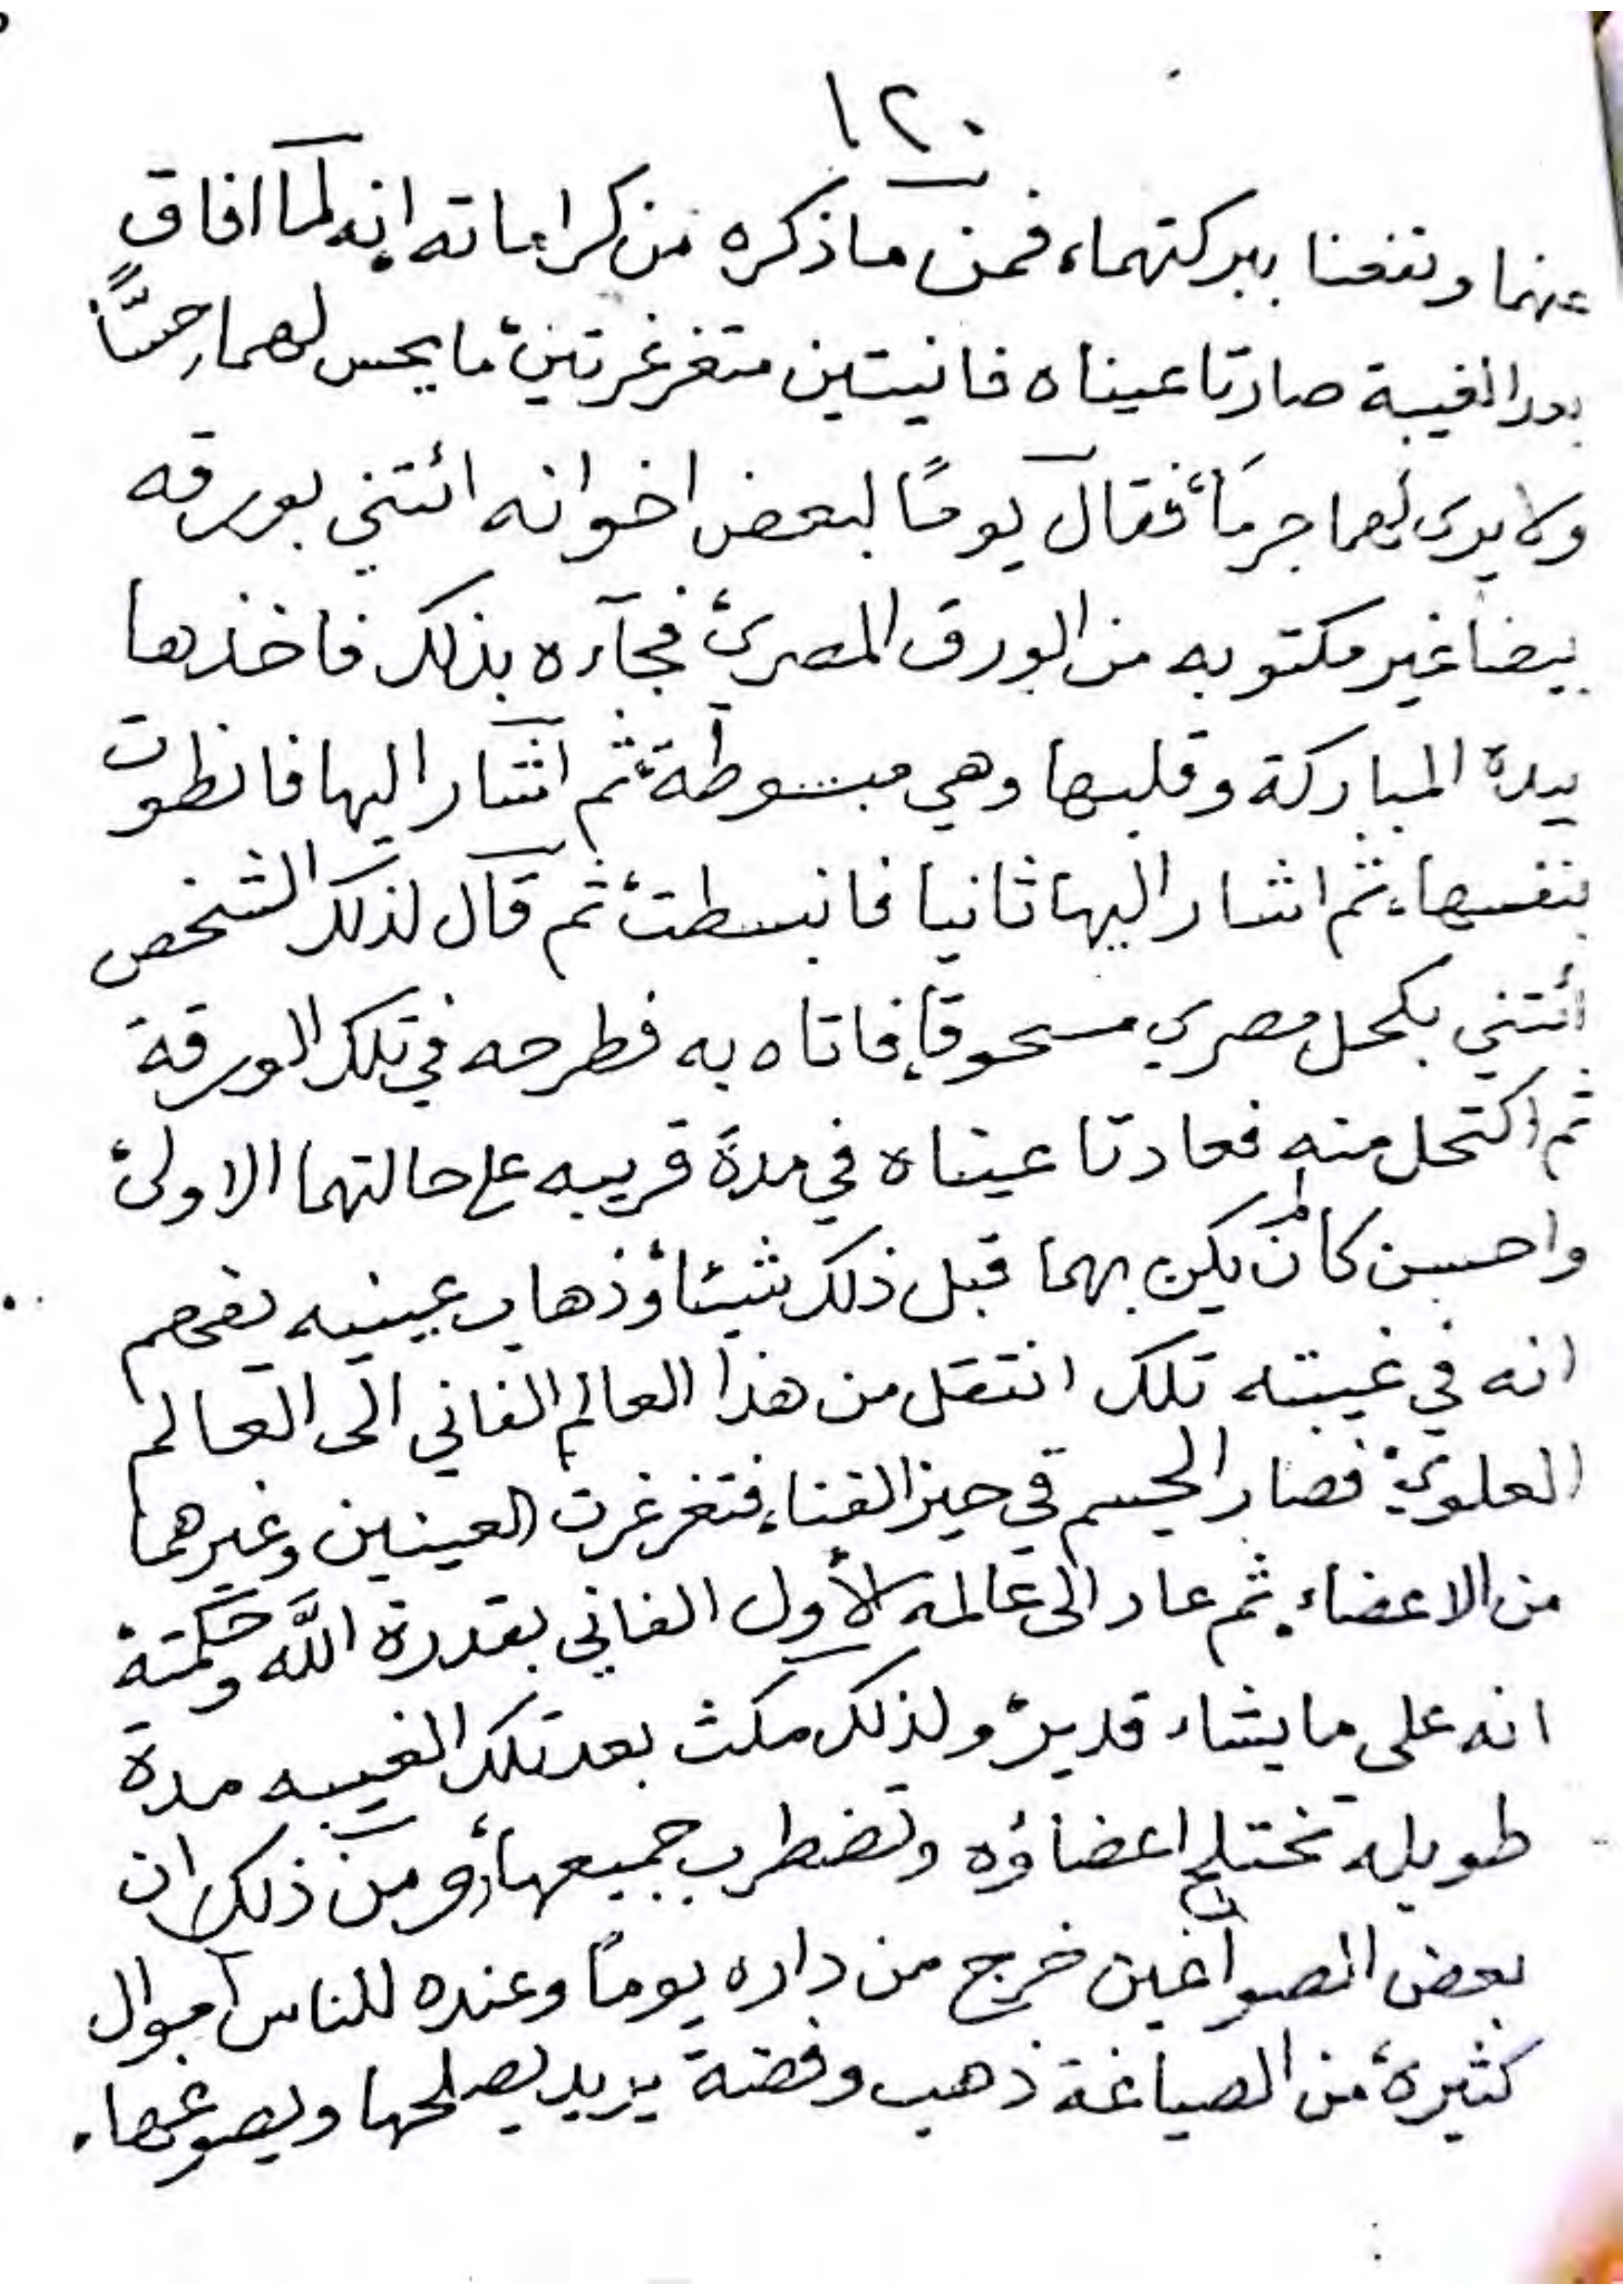 ١٢٠
عنهما ونفعنا ببركتهما، فمن ماذكره من كراماته انه لما افاق
بعد الغيبة صارتا عيناه فانيتين متغرغرتين، ما يحس لهما حسًّا
ولا يرى لهما جرمًا، فقال يومًا لبعض اخوانه ائتني بورقه
بيضا غير مكتوبه من الورق المصري، فجآءه بذلك فاخذها
بيده المباركة وقلبها وهي مبسوطة، ثم اشار اليها فانطوت
بنفسها، ثم اشار اليها ثانيا فانبسطت، ثم قال لذلك الشخص
ائتني بكحل مصري مسحوقا، فاتاه به فطرحه في تلك الورقة
ثم اكتحل منه فعادتا عيناه في مدة قريبه على حالتهما الاولى،
واحسن كأن لم يكن بهما قبل ذلك شيئا، وذهاب عينيه
انه في غيبته تلك انتقل من هذا العالم الفاني الى العالم
العلوي، فصار الجسم في حيز الفناء، فتغرغرت العينين وغيرهما
من الاعضاء، ثم عاد الى عالمه الأول الفاني بقدرة اللّه وحكمته
انه على ما يشاء قدير، ولذلك مكث بعد تلك الغيبه مدة
طويله تختلج اعضاؤه وتضطرب جميعها، ومن ذلك ان
بعض الصواغين خرج من داره يومًا وعنده للناس اموال
كثيرة، من الصياغة ذهب وفضة يريد يصلحها ويصوغها،